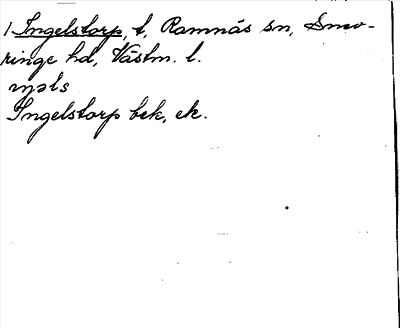 1 Ingelstorp, t, Ramnäs sn, Snev-
ringe hd, Västm. l.
Ingelstorp bek, ek.